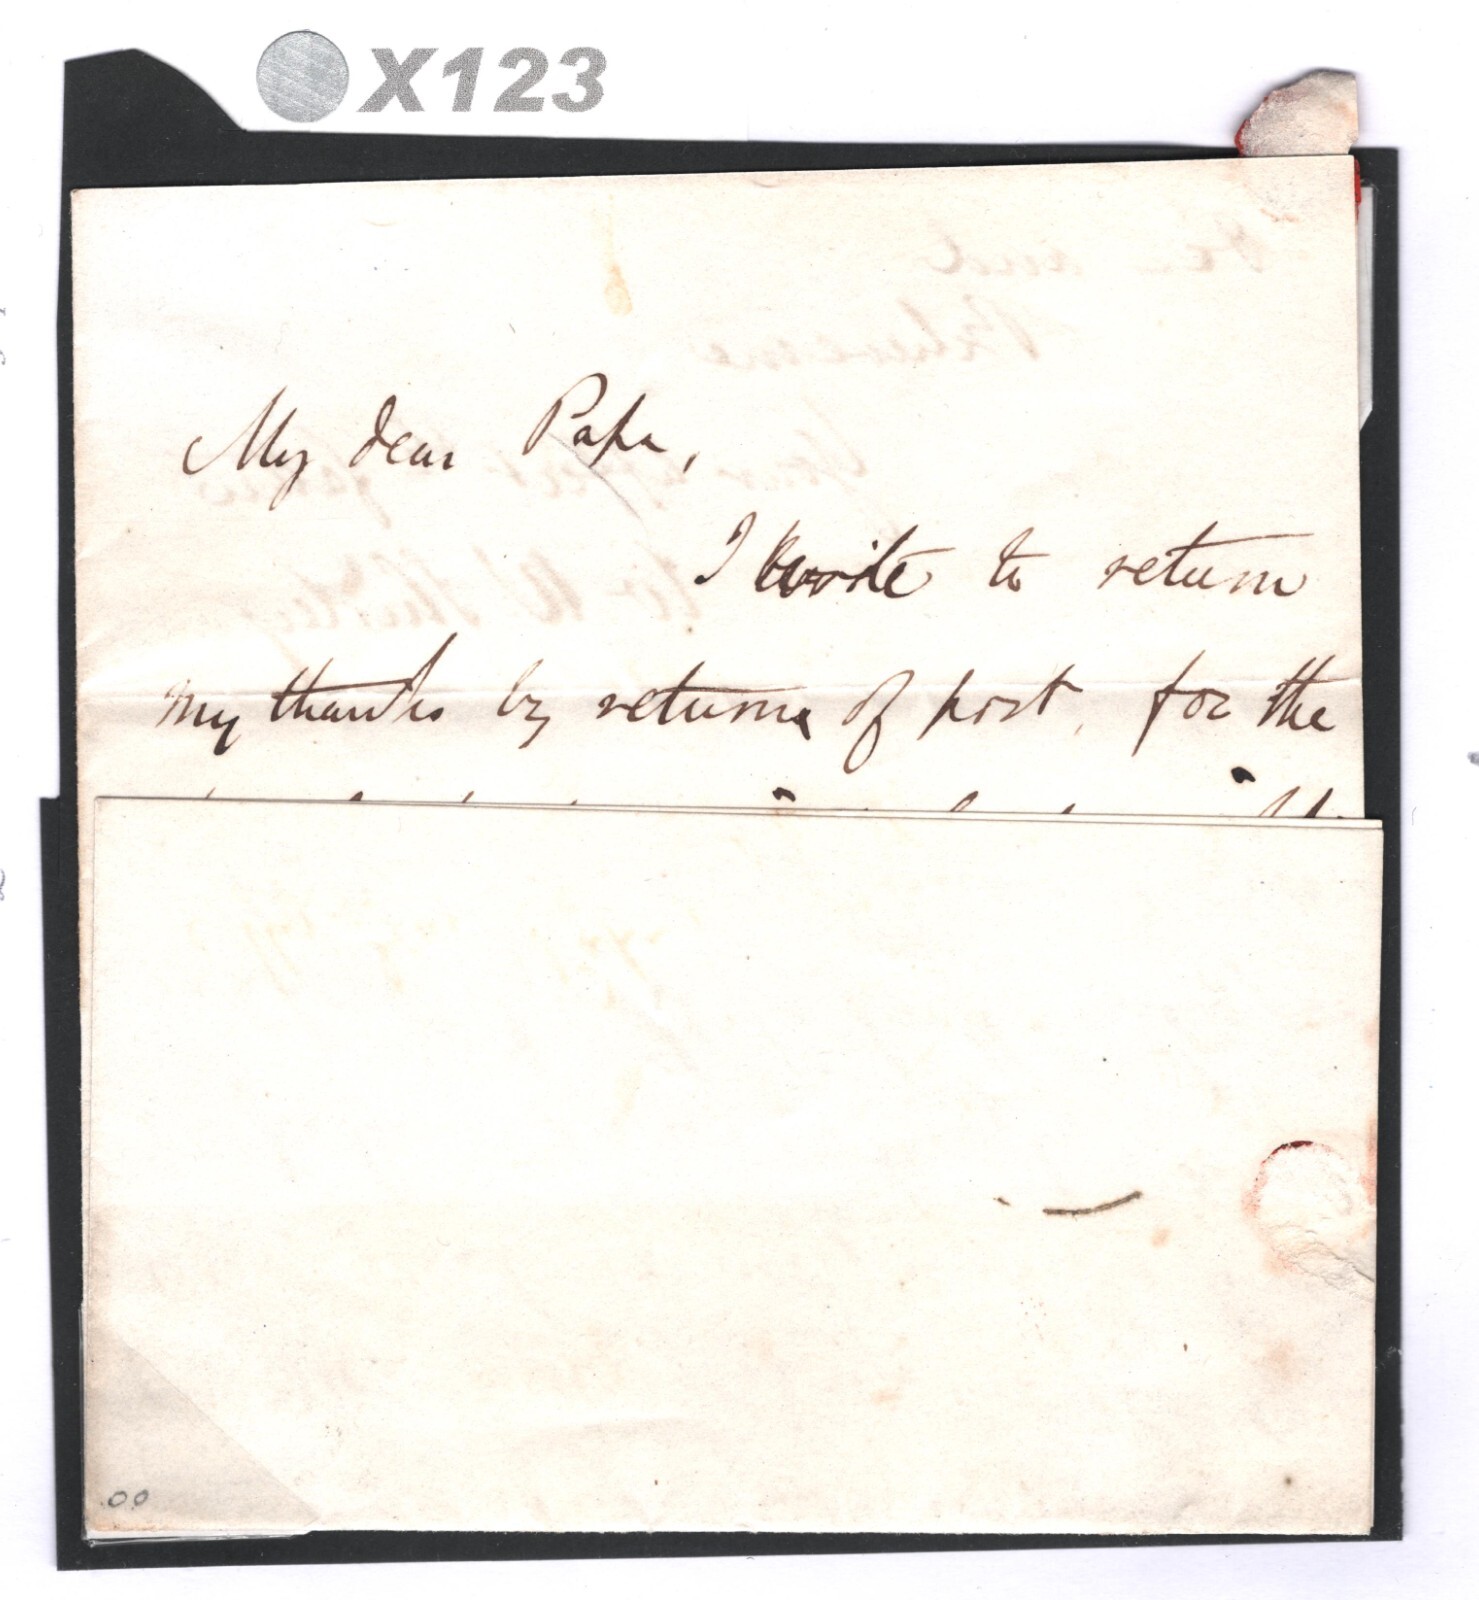 X123
My dear Papa,
I write to return
my thanks by return of post, for the
00